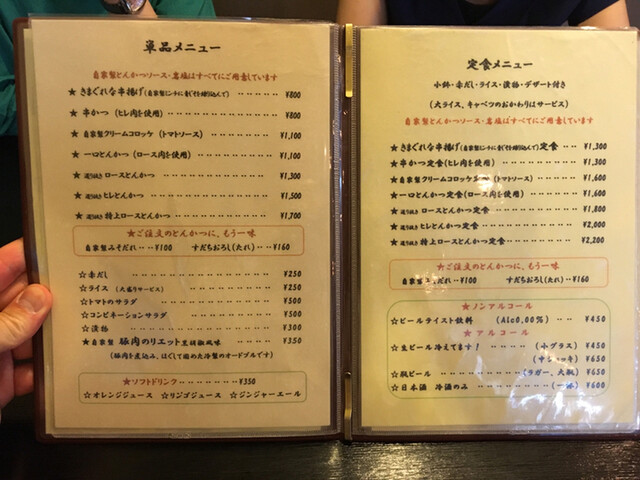 単品メニュー
自家製とんかつソース・岩塩はすべてにご用意しています
★きまぐれな串揚げ ¥800
★串かつ (ヒレ肉を使用) ¥800
★自家製クリームコロッケ (トマトソース) ¥1,100
★一口とんかつ (ロース肉を使用) ¥1,100
★ ロースとんかつ ¥1,300
★ ヒレとんかつ ¥1,500
★ 特上ロースとんかつ ¥1,700
★ご注文のとんかつに、もう一味
自家製みそだれ‥¥100 すだちおろし(たれ)‥¥160
☆赤だし ¥250
☆ライス (大盛りサービス) ¥250
☆トマトのサラダ ¥500
☆コンビネーションサラダ ¥500
☆漬物 ¥300
★自家製 豚肉のリエット黒胡椒風味 ¥350
(豚肉を煮込み、ほぐして固めた冷製のオードブルです)
★ソフトドリンク ¥350
☆オレンジジュース ☆リンゴジュース ☆ジンジャーエール
定食メニュー
小鉢・赤だし・ライス・漬物・デザート付き
(大ライス、キャベツのおかわりはサービス)
自家製とんかつソース・岩塩はすべてにご用意しています
★きまぐれな串揚げ 定食 ¥1,300
★串かつ定食(ヒレ肉を使用) ¥1,300
★自家製クリームコロッケ (トマトソース) ¥1,600
★一口とんかつ定食(ロース肉を使用) ¥1,600
★ ロースとんかつ定食 ¥1,800
★ ヒレとんかつ定食 ¥2,000
★ 特上ロースとんかつ定食 ¥2,200
★ご注文のとんかつに、もう一味
自家製みそだれ‥¥100 すだちおろし(たれ)‥¥160
★ノンアルコール
☆ビールテイスト飲料 (Alc0.00%) ¥450
★アルコール
☆生ビール冷えてます! (小グラス) ¥450
(中ジョッキ) ¥650
☆瓶ビール (ラガー、大瓶) ¥650
☆日本酒 冷酒のみ (一杯) ¥600